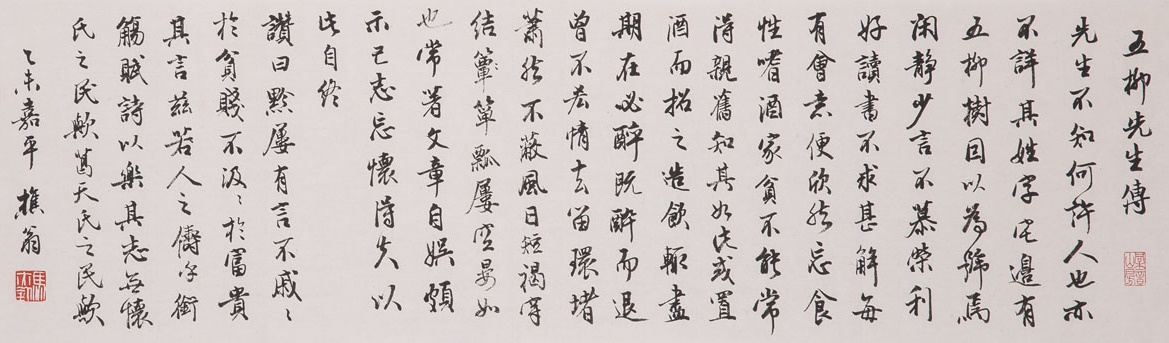 五柳先生傳
先生不知何許人也亦
不詳其姓字宅邊有
五柳樹因以為號焉
閑靜少言不慕榮利
好讀書不求甚解每
有會意便欣然忘食
性嗜酒家貧不能常
得親舊知其如此或置
酒而招之造飲輒盡
期在必醉既醉而退
曾不吝情去留環堵
蕭然不蔽風日短褐穿
結簞簞瓢屢空晏如
也常著文章自娛頗
示己志忘懷得失以
此自終
讚曰黔屢有言不戚〻
於貧賤不汲〻於富貴
其言茲若人之儔乎銜
觴賦詩以樂其志無懷
氏之民歟葛天氏之民歟
乙未嘉平 樵翁